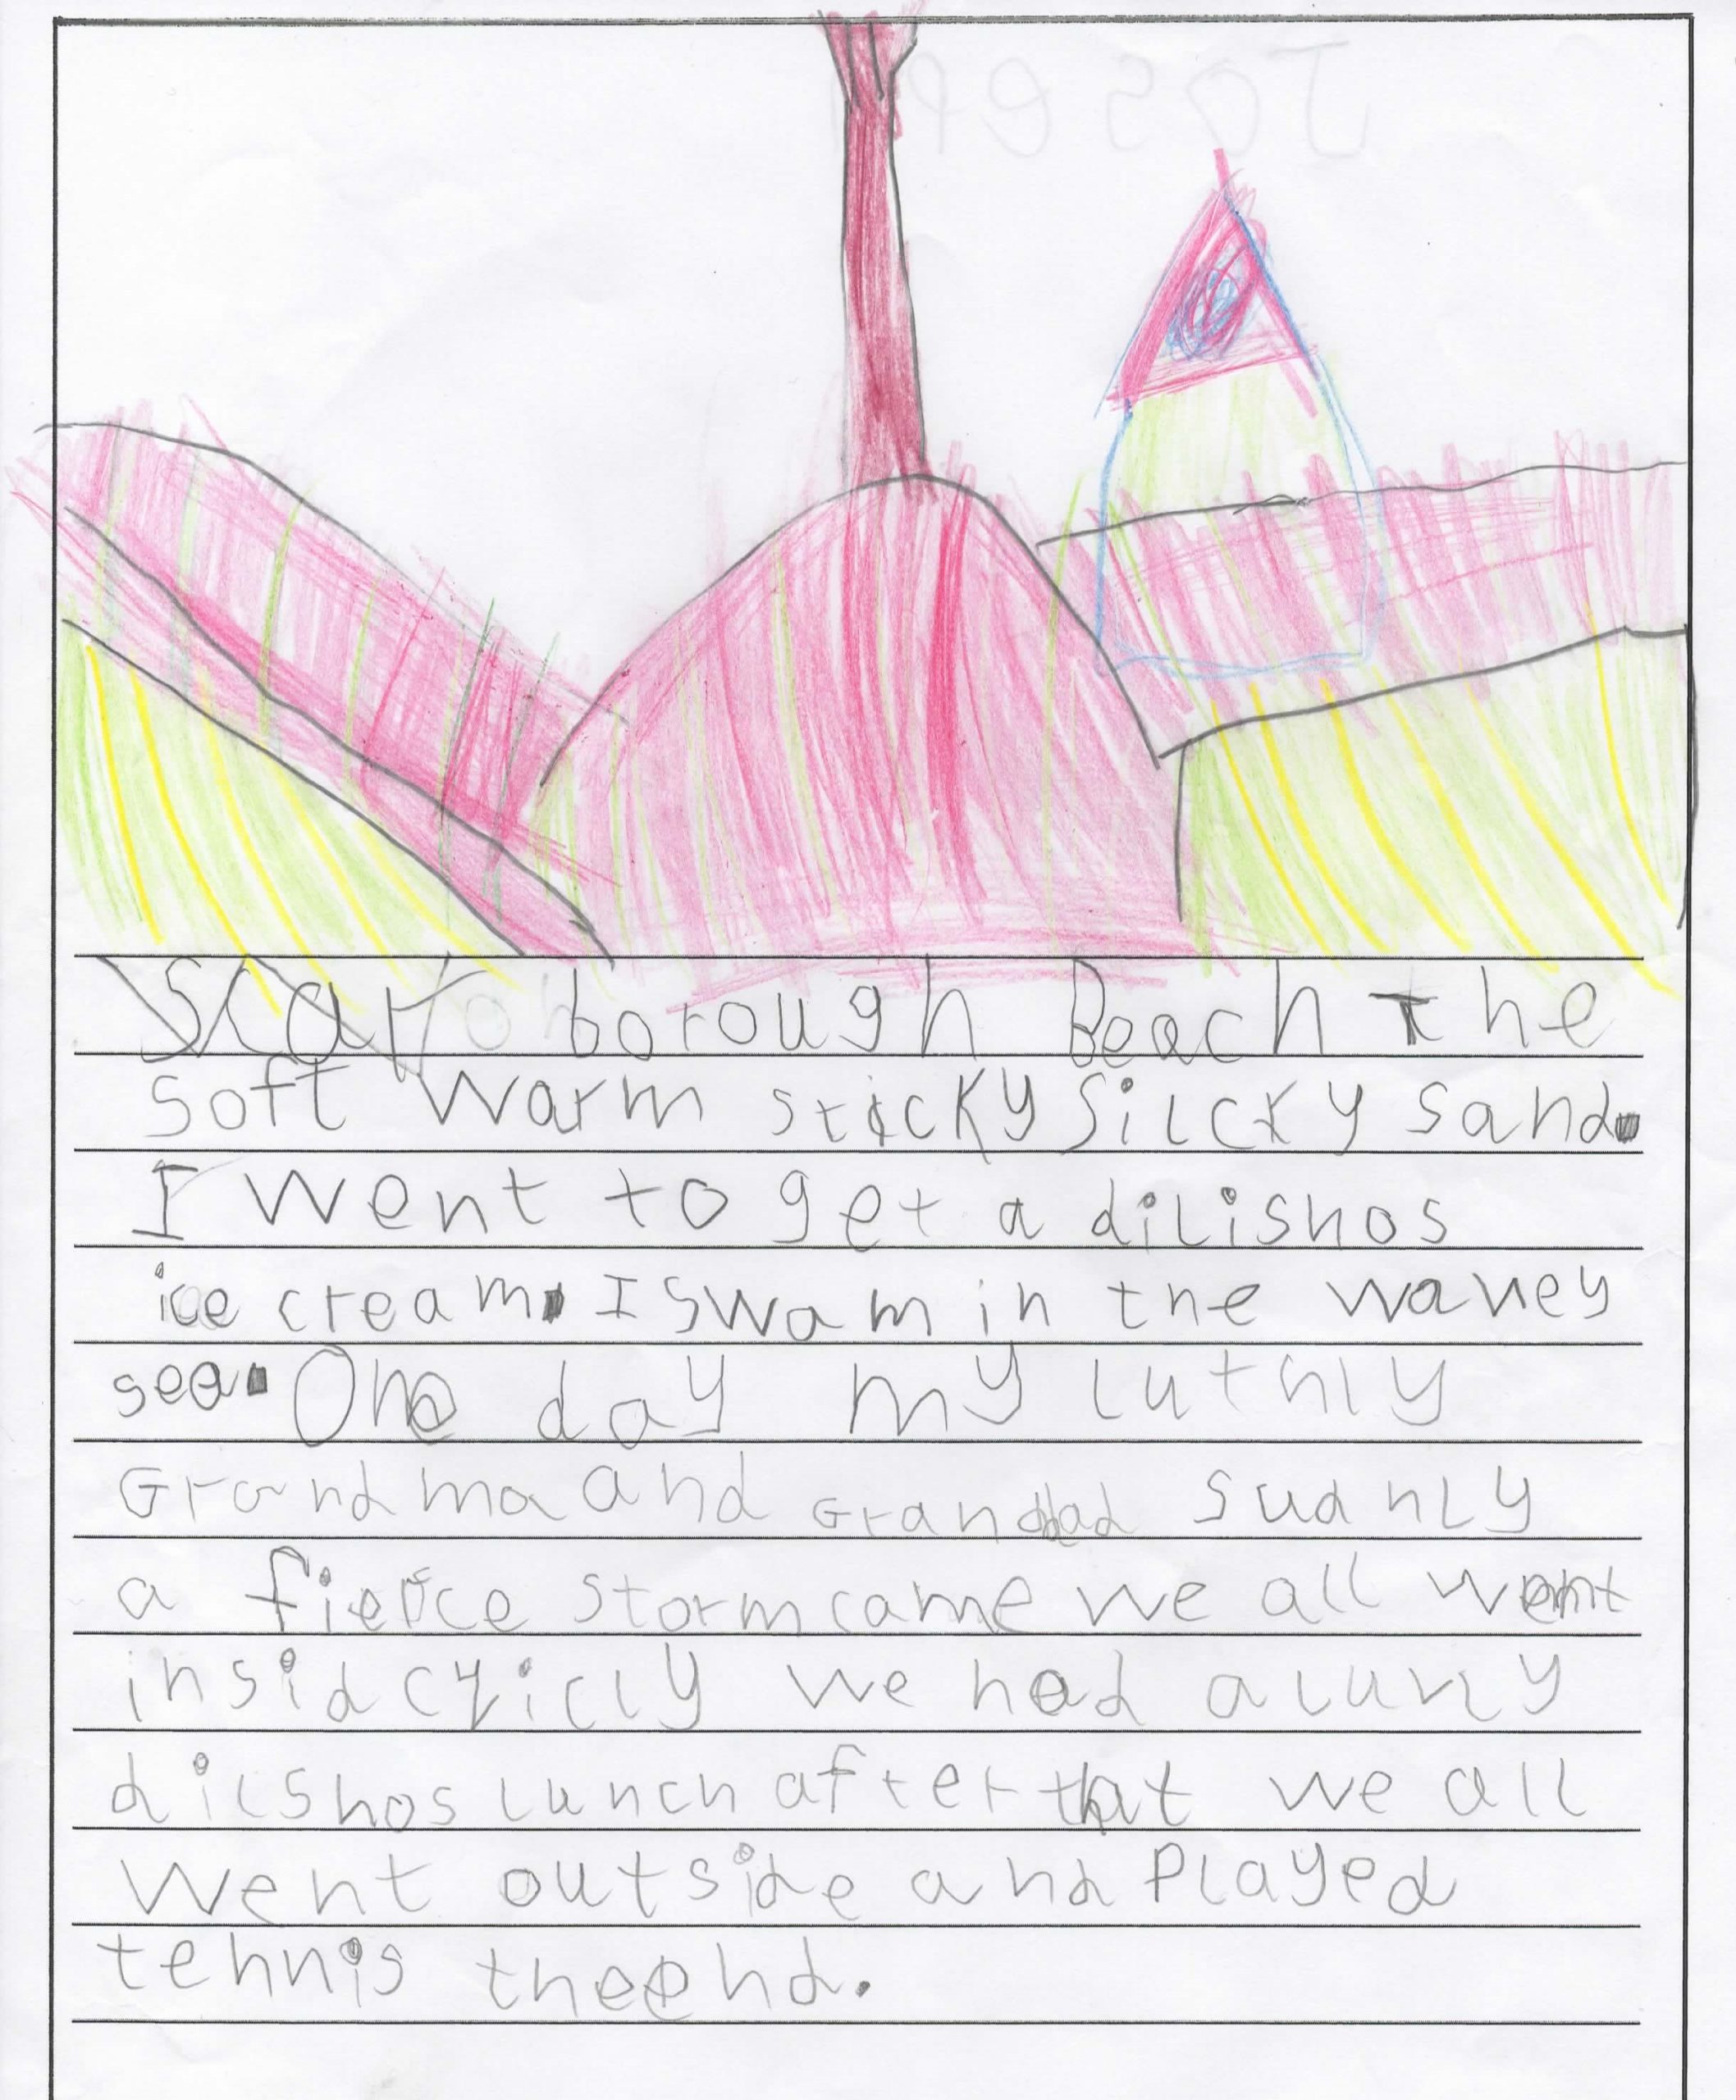 Joseph
Scarborough Beach the
soft warm sticky silcky sand.
I went to get a dilishos
ice cream. I swam in the wavey
sea. One day my luthly
Grandma and Grandad sudnly
a fierce storm came we all went
insid cqicly we had a luvly
dilshos lunch after that we all
went outside and Played
tennis the end.